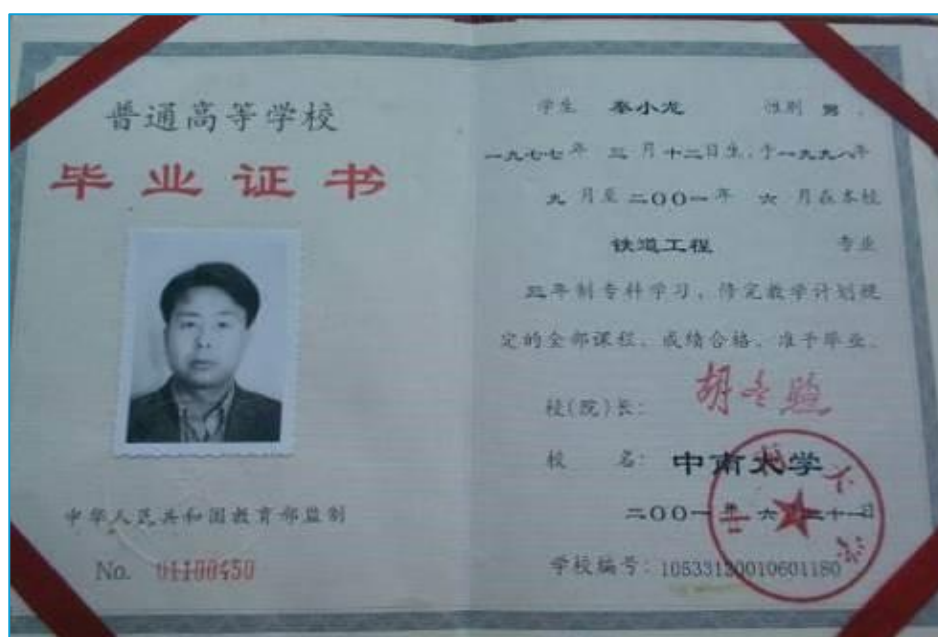 普通高等学校
毕业证书
中华人民共和国教育部监制
No. 01100450
学生 秦小龙 性别 男，
一九七七年 三 月十二日生，于一九九八年
九 月至二〇〇一年 六 月在本校
铁道工程 专业
三年制专科学习，修完教学计划规
定的全部课程，成绩合格，准予毕业。
校(院)长：
校 名：中南大学
二〇〇一年 六 月二十一日
学校编号：10533120010601180